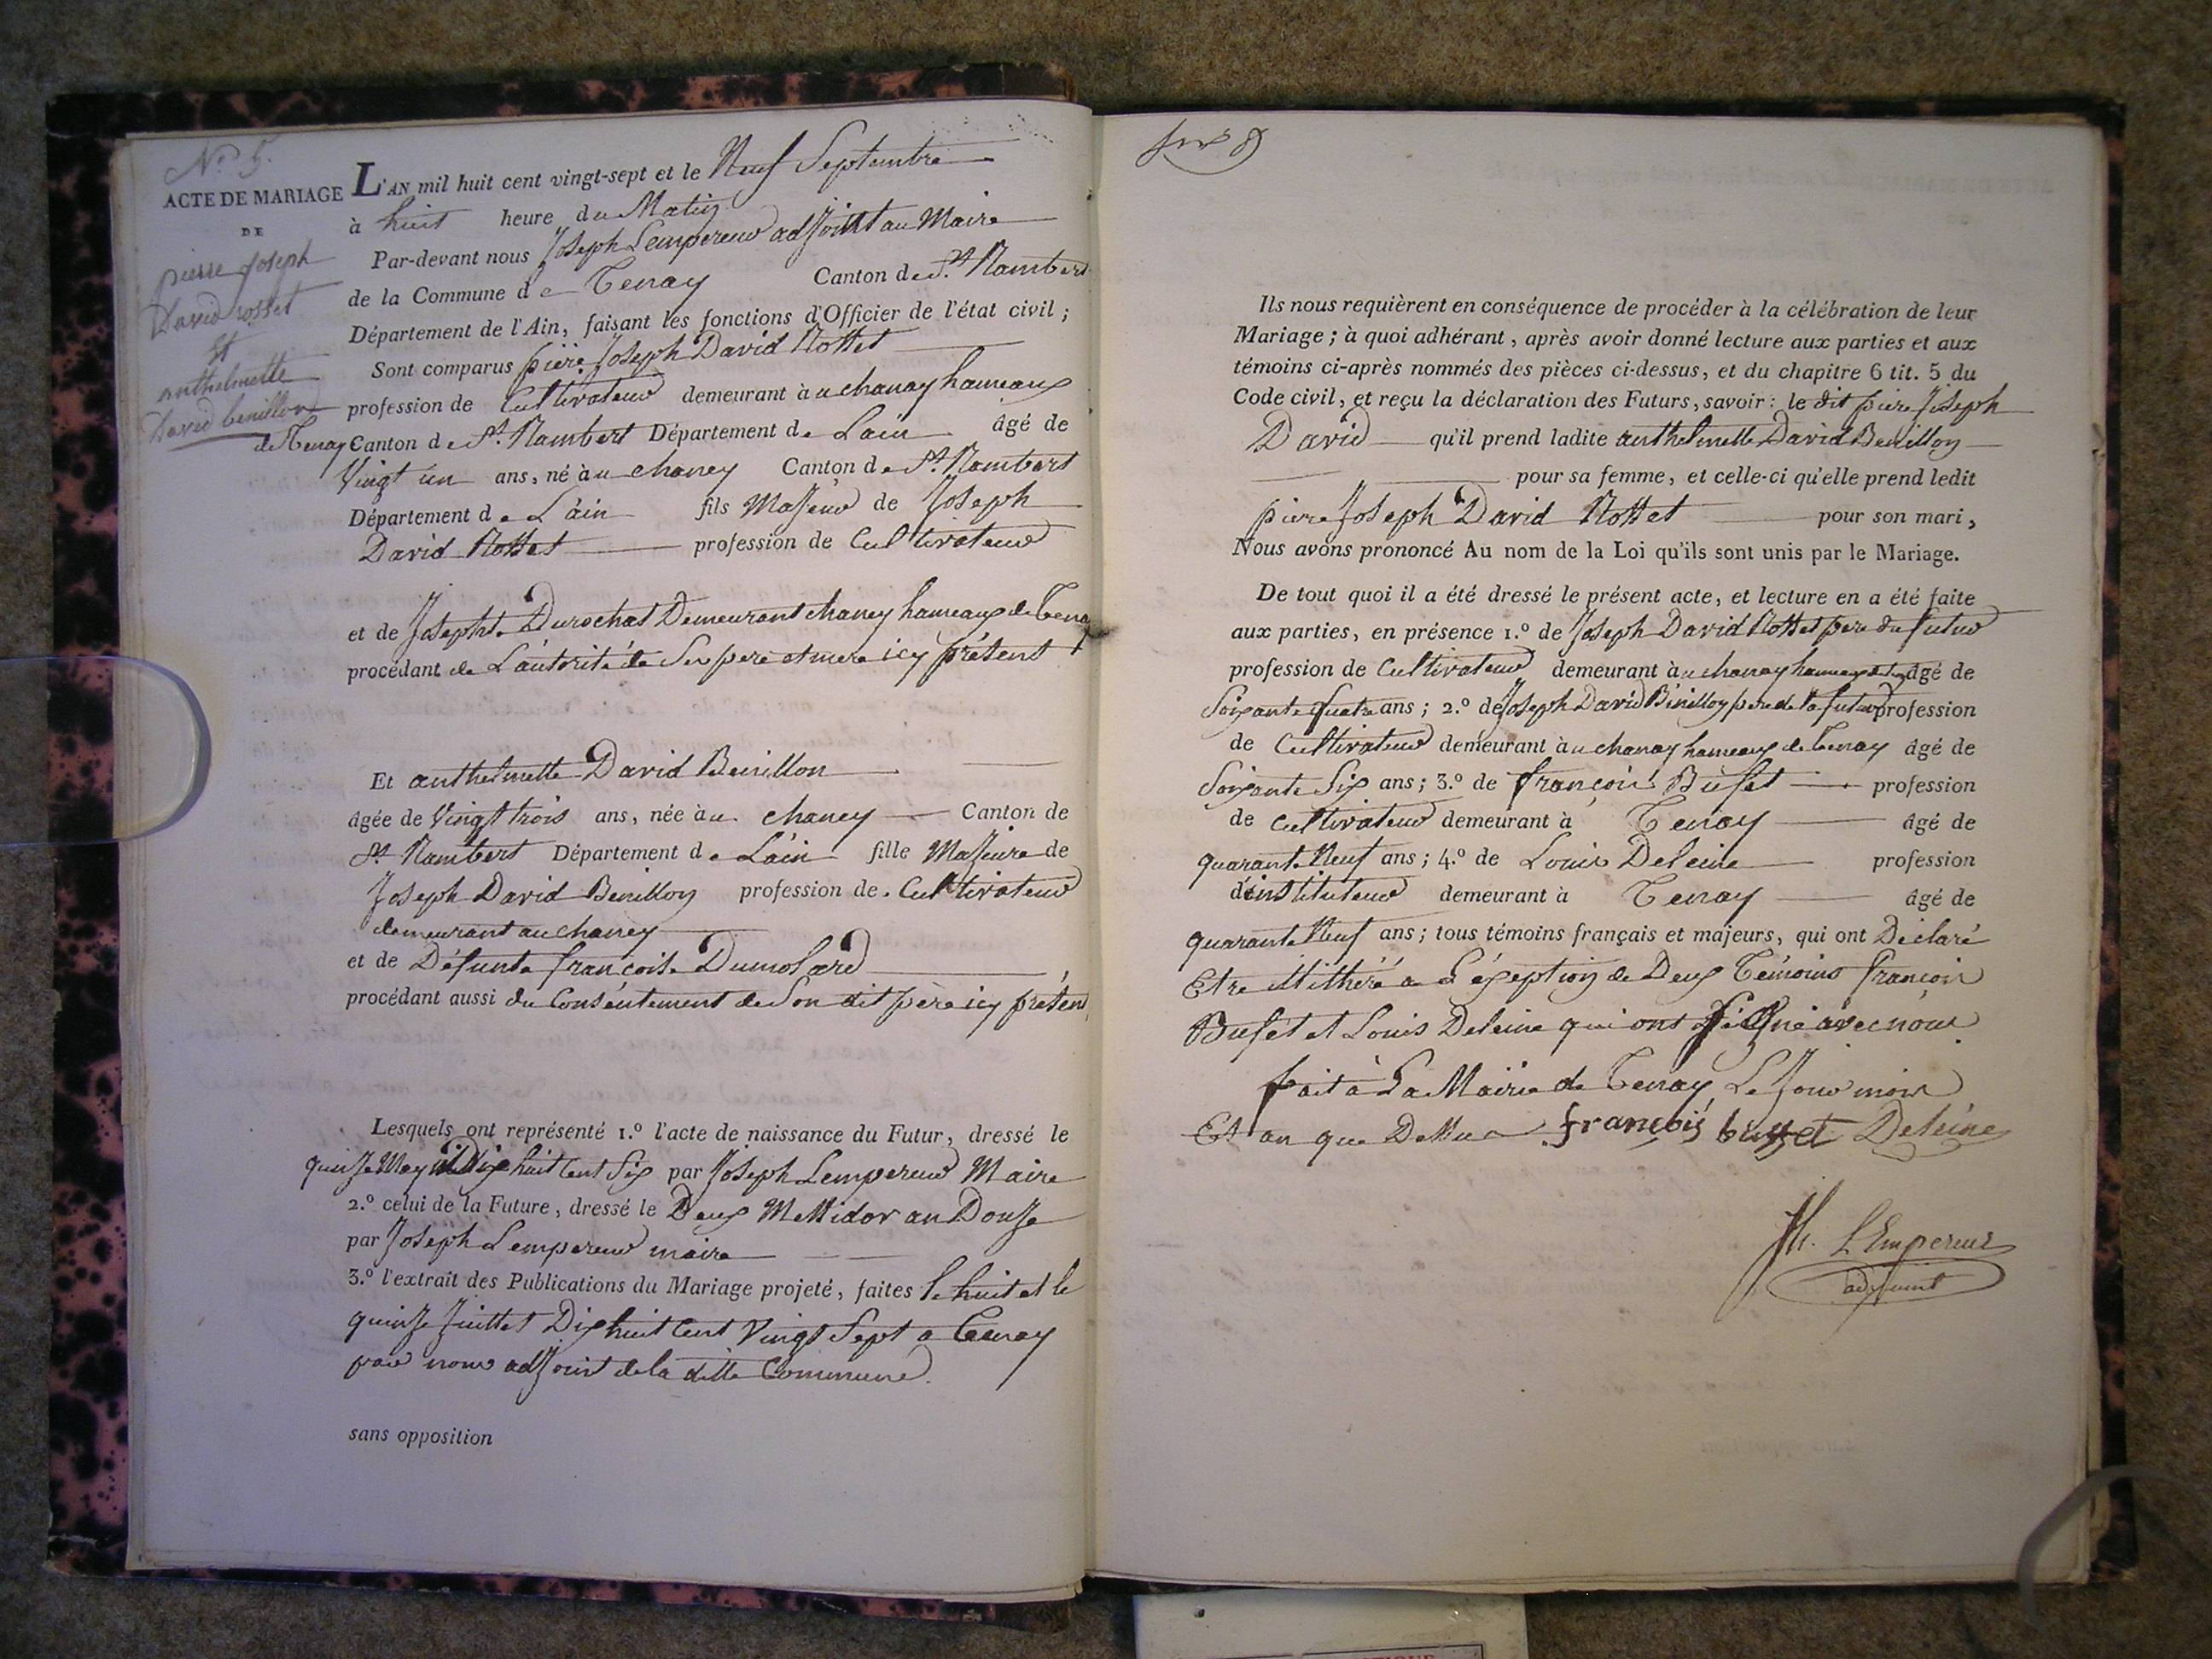 N.º 5.
ACTE DE MARIAGE
DE
pierre Joseph
David rosset
Et
anthelmette
David benillon
L'AN mil huit cent vingt-sept et le Neuf Septembre
à huit heure du Matin
Par-devant nous Joseph Lempereur adjoint au Maire
de la Commune de Tenay Canton de St. Rambert
Département de l'Ain, faisant les fonctions d'Officier de l'état civil ;
Sont comparus pierre Joseph David Rosset
profession de Cultivateur demeurant à u chanay hameaux
de Tenay Canton de St. Rambert Département de Lain âgé de
Vingt un ans, né à u chaney Canton de St. Rambert
Département de L'ain fils Majeur de Joseph
David Rosset profession de Cultivateur
et de Josephte Durochat Demeurant chaney hameaux de Tena
procédant de L'autorité de Ses pere et mere icy présent
Et anthelmette David Benillon
âgée de Vingt trois ans, née à u chaney Canton de
St. Rambert Département de Lain fille Majeure de
Joseph David Benillon profession de Cultivateur
demeurant au chaney
et de Défunte francoise Dumolard
procédant aussi du Consentement de Son dit père icy présent
Lesquels ont représenté 1.º l'acte de naissance du Futur, dressé le
quinze May Dix huit Cent Six par Joseph Lempereur Maire
2.º celui de la Future, dressé le Deux Messidor an Douze
par Joseph Lempereur maire
3.º l'extrait des Publications du Mariage projeté, faites le huit et le
quinze Juillet Dix huit Cent Vingt Sept a Tenay
par nous adjoint de la ditte Commune.
sans opposition
Ils nous requièrent en conséquence de procéder à la célébration de leur
Mariage ; à quoi adhérant, après avoir donné lecture aux parties et aux
témoins ci-après nommés des pièces ci-dessus, et du chapitre 6 tit. 5 du
Code civil, et reçu la déclaration des Futurs, savoir : le dit piere Joseph
David qu'il prend ladite anthelmette David Benillon
pour sa femme, et celle-ci qu'elle prend ledit
piere Joseph David Rosset pour son mari,
Nous avons prononcé Au nom de la Loi qu'ils sont unis par le Mariage.
De tout quoi il a été dressé le présent acte, et lecture en a été faite
aux parties, en présence 1.º de Joseph David Rosset pere du futur
profession de Cultivateur demeurant à u chanay hameaux âgé de
Soixante quatre ans ; 2.º de Joseph David Bénillon pere de la future profession
de Cultivateur demeurant à u chanay hameaux de Tenay âgé de
Soixante Six ans ; 3.º de françois Bufet profession
de cultivateur demeurant à Tenay âgé de
quarante Neuf ans ; 4.º de Louis Deleine profession
d'instituteur demeurant à Tenay âgé de
quarante Neuf ans ; tous témoins français et majeurs, qui ont Déclaré
Etre illithéré a L'éxeption de Deux Témoins françois
Bufet et Louis Deleine qui ont Signé avec nous
fait à La Mairie de Tenay Le Jour mois
Et an que Dessus françois buffet Deleine
Jh. LEmpereur
adjoint